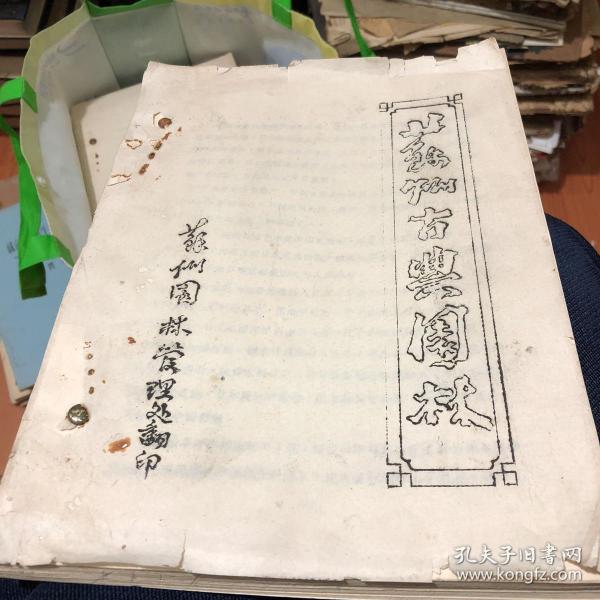 蘇州古典園林
蘇州園林管理处翻印
孔夫子旧书网
www.kongfz.com